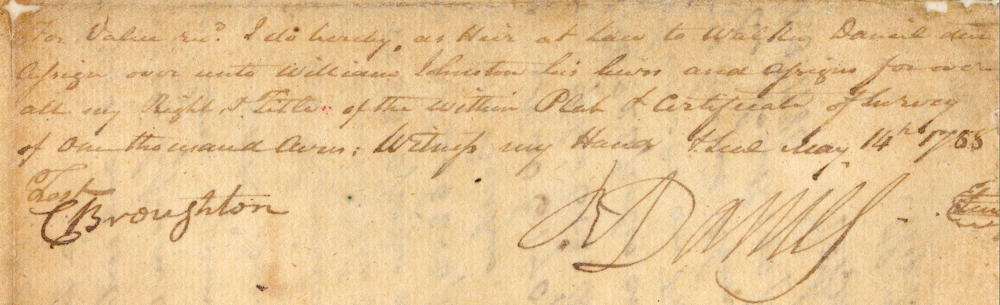 For Value recd. I do hereby, as Heir at Law to Walker Daniel decd
Assign over unto William Johnston his heirs and assigns for ever
all my Right & Title of the within Plat & Certificate of Survey
of One thousand Acres; Witness my Hand & Seal May 14th 1788
Test
CBroughton
R Daniel